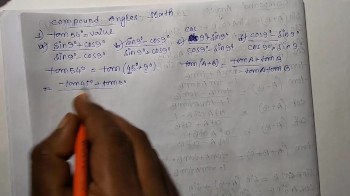 Compound Angles - Math
1) tan54° = value
a) sin9°+cos9° / sin9°-cos9° b) sin9°-cos9° / sin9°+cos9° c) cos9°+sin9° / cos9°-sin9° d) cos9°-sin9° / cos9°+sin9°
tan54° = tan(45°+9°) tan(A+B) = tanA+tanB / 1-tanAtanB
= tan45°+tan9°